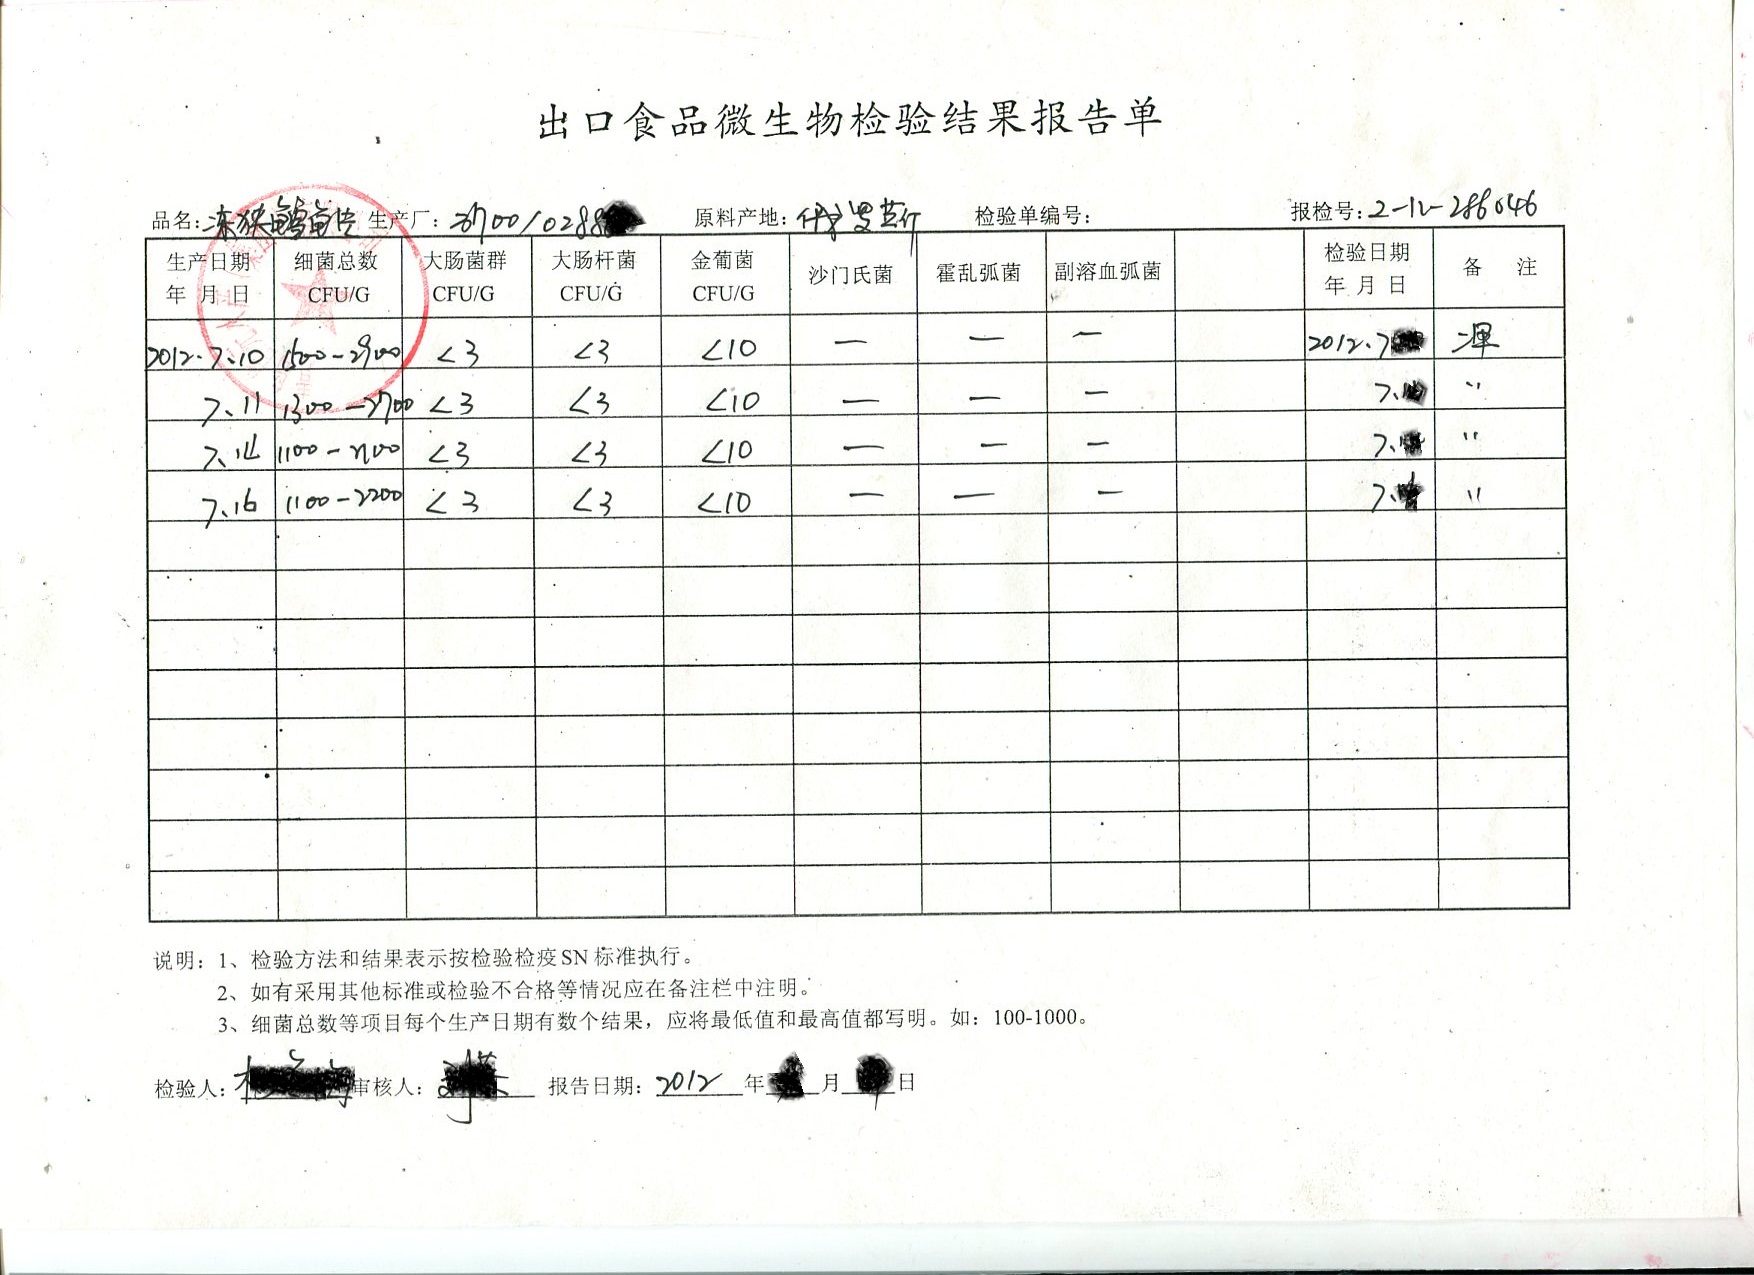 出口食品微生物检验结果报告单
品名: 冻狭鳕鱼片 生产厂: 3700/0288 原料产地: 俄罗斯 检验单编号: 报检号: 2-12-286046
生产日期 细菌总数 大肠菌群 大肠杆菌 金葡菌 沙门氏菌 霍乱弧菌 副溶血弧菌 检验日期 备 注
年 月 日 CFU/G CFU/G CFU/G CFU/G 年 月 日
2012.7.10 1500-2900 <3 <3 <10 — — — 2012.7
7.11 1300-2700 <3 <3 <10 — — — 7. "
7.14 1100-2100 <3 <3 <10 — — — 7. "
7.16 1100-2200 <3 <3 <10 — — — 7. "
说明: 1、检验方法和结果表示按检验检疫SN标准执行。
2、如有采用其他标准或检验不合格等情况应在备注栏中注明。
3、细菌总数等项目每个生产日期有数个结果，应将最低值和最高值都写明。如: 100-1000。
检验人: 审核人: 报告日期: 2012 年 月 日